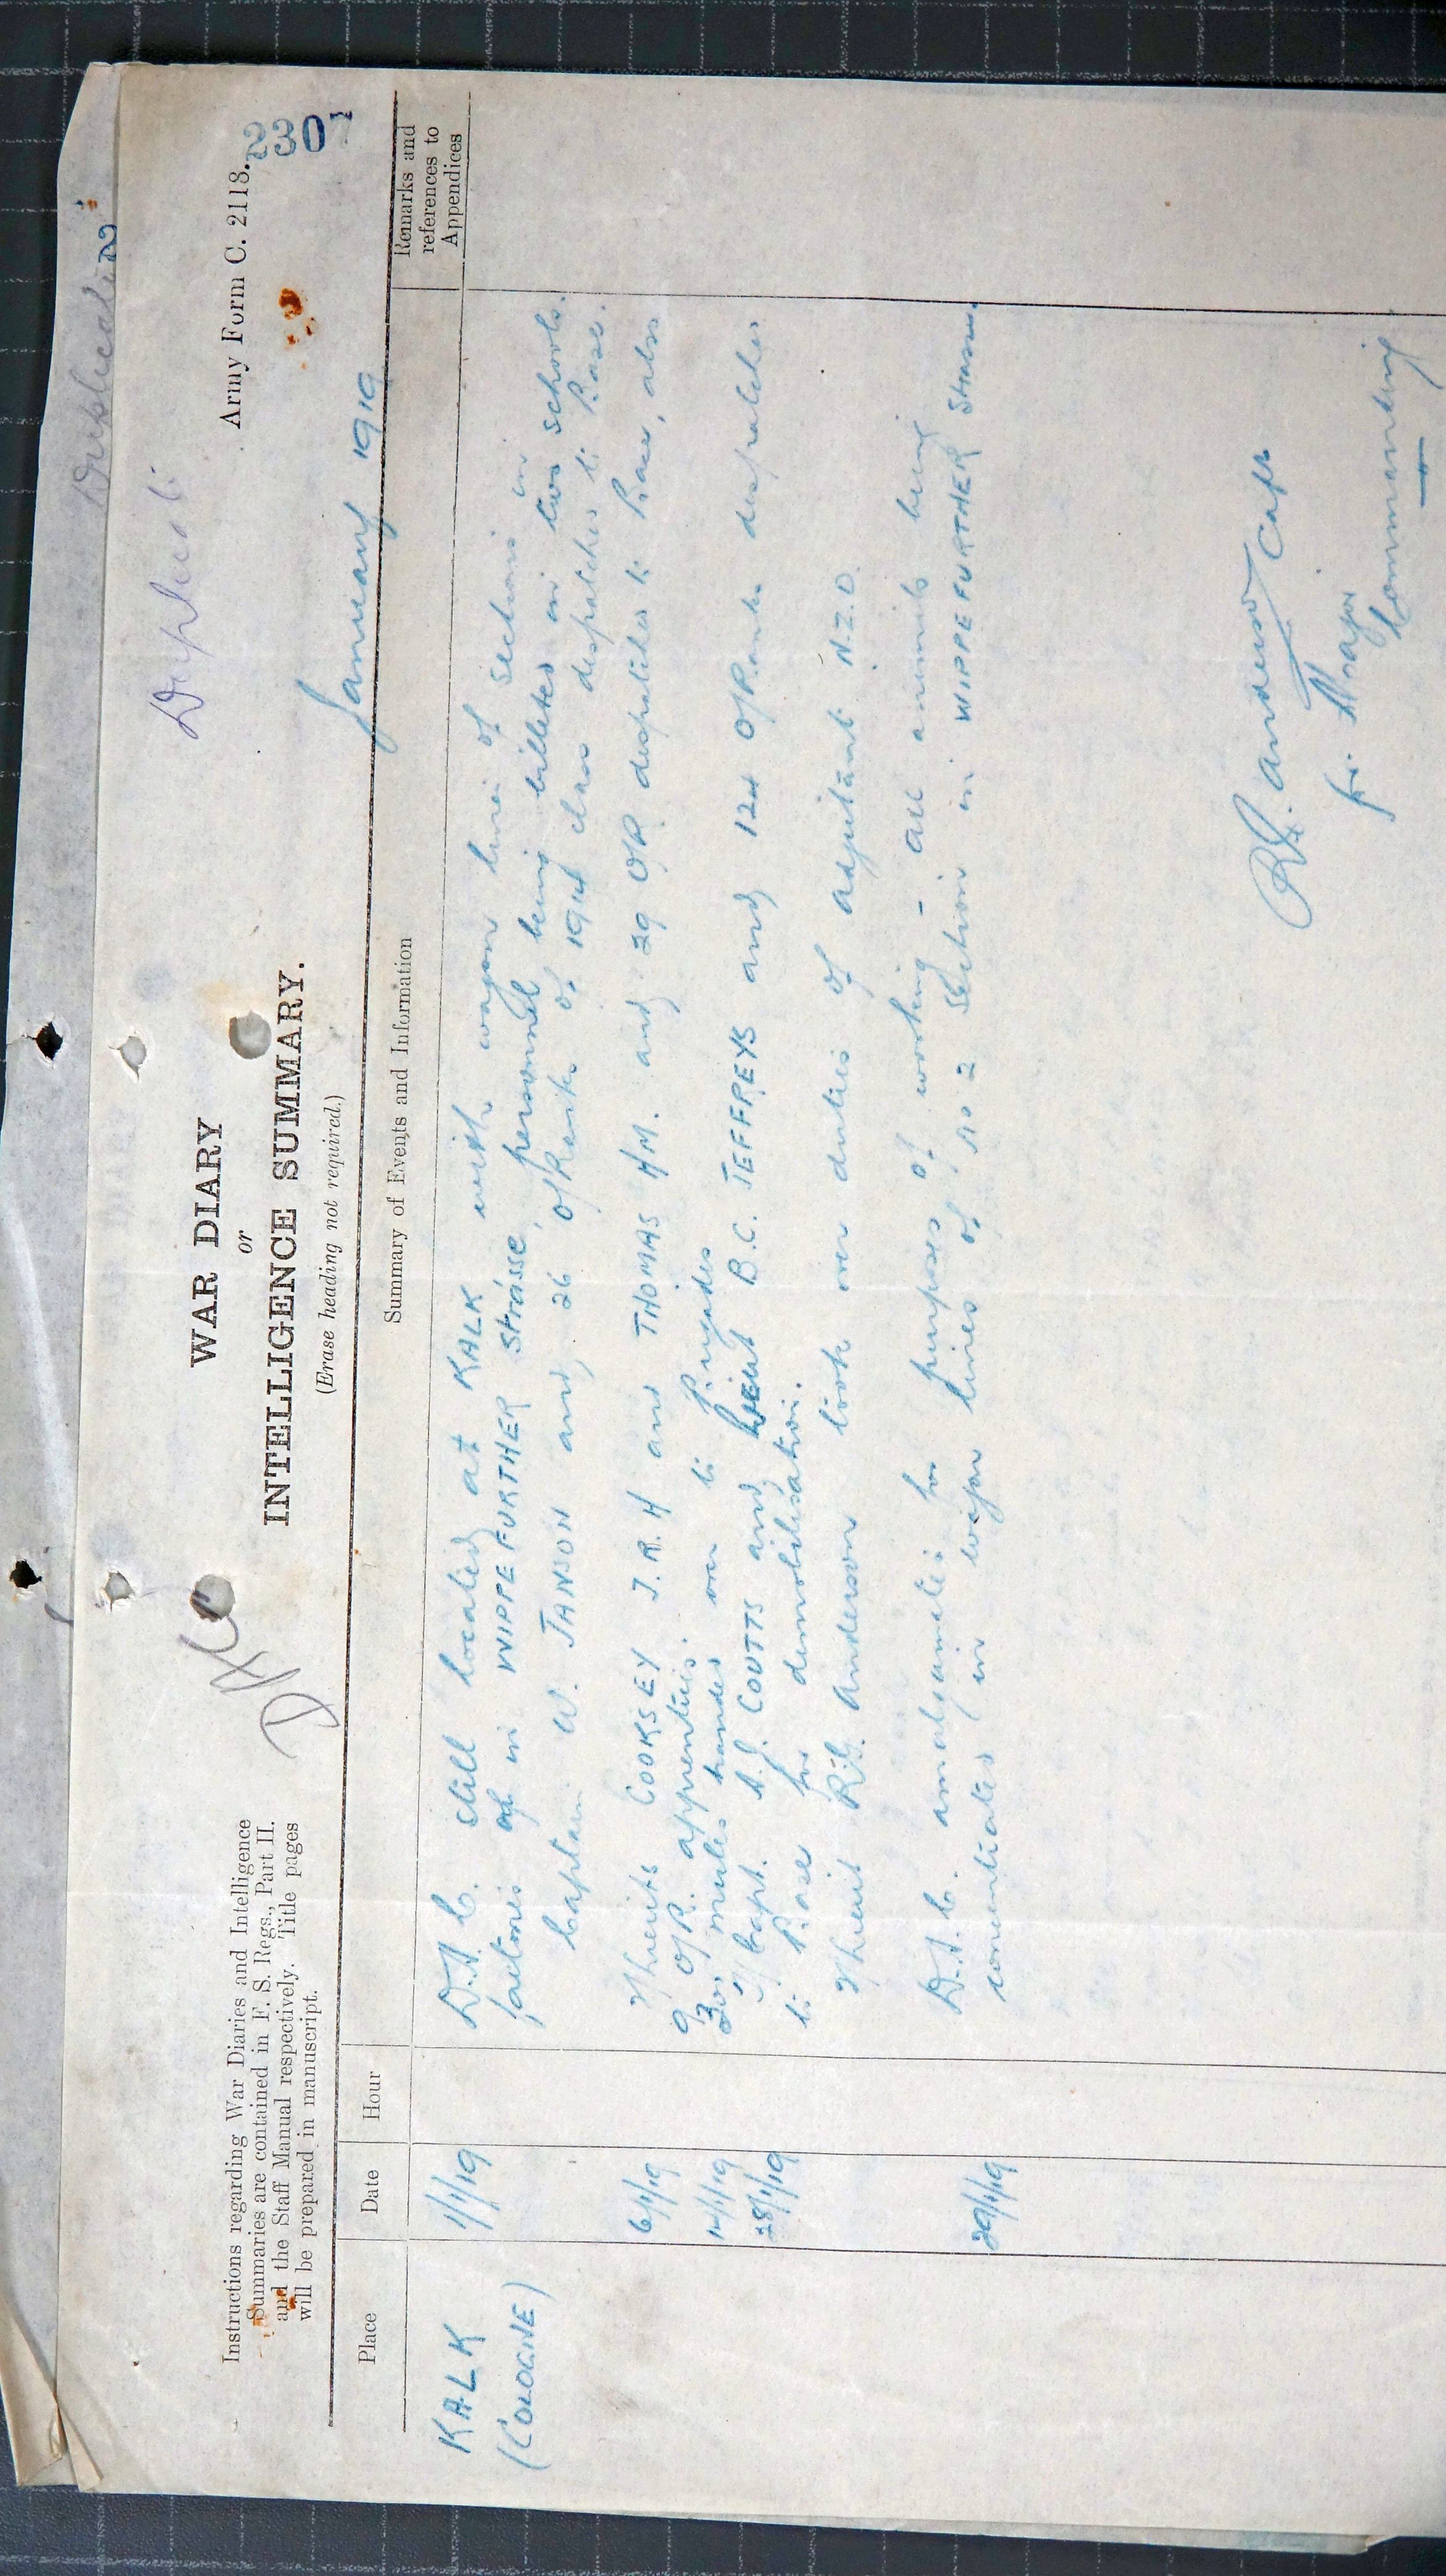 Duplicate 2
Duplicate
Army Form C. 2118.
2307
WAR DIARY
or
INTELLIGENCE SUMMARY.
(Erase heading not required.)
Instructions regarding War Diaries and Intelligence
Summaries are contained in F. S. Regs., Part II.
and the Staff Manual respectively. Title pages
will be prepared in manuscript.
DAC
January 1919
Place
Date
Hour
Summary of Events and Information
Remarks and
references to
Appendices
KALK
(COLOGNE)
1/1/19
D.A.C. still located at KALK with wagon lines of Sections in
factories in WIPPEFURTHER Strasse, personnel being billeted in two schools.
Captain W. JANSON and 26 O/Ranks of 1914 class despatched to Base.
6/1/19
2/Lieuts COOKSEY J.R.H and THOMAS H.M. and 29 OR despatched to Base, also
9 O/R. apprentices.
14/1/19
mules handed over to Brigades
28/1/19
T/Capt. A.J. COUTTS and Lieut B.C. JEFFREYS and 124 O/Ranks despatched
to Base for demobilisation.
2/Lieut R.G. Anderson took over duties of adjutant N.Z.D.
29/1/19
D.A.C. amalgamated for purposes of working - all animals being
concentrated in wagon lines of No 2 Section in WIPPEFURTHER Strasse.
R.G. Anderson Capt
for Major
Commanding